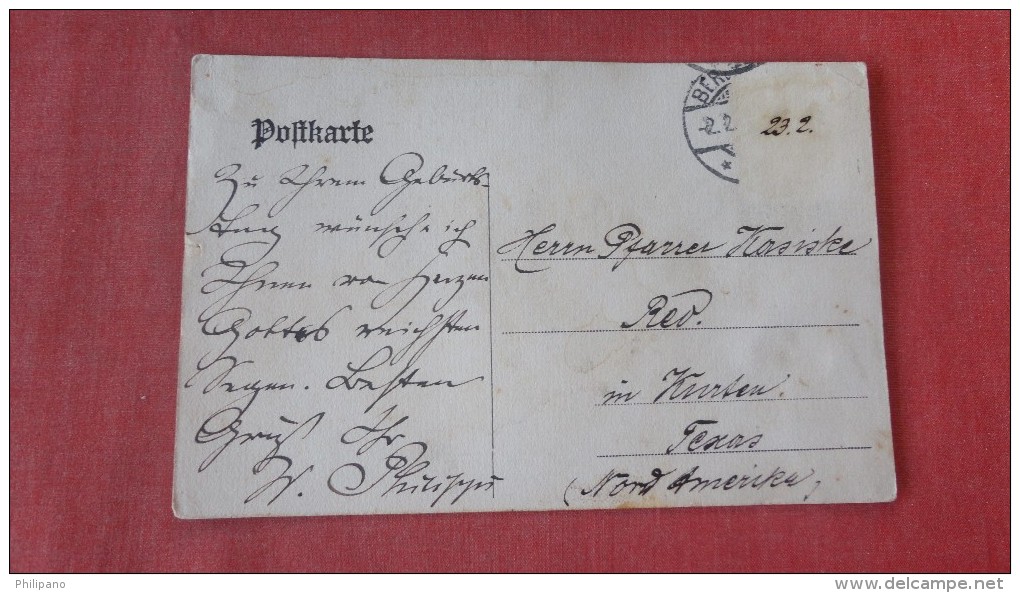 Postkarte
BER
2.2
23.2.
Zu Ihrem Geburts-
tag wünsche ich
Ihnen von Herzen
Gottes reichsten
Segen. Besten
Gruß Ihr
W. Philipps
Herrn Pfarrer Kasiske
Rev.
in Kurten.
Texas
(Nord Amerika)
Philipano
www.delcampe.net